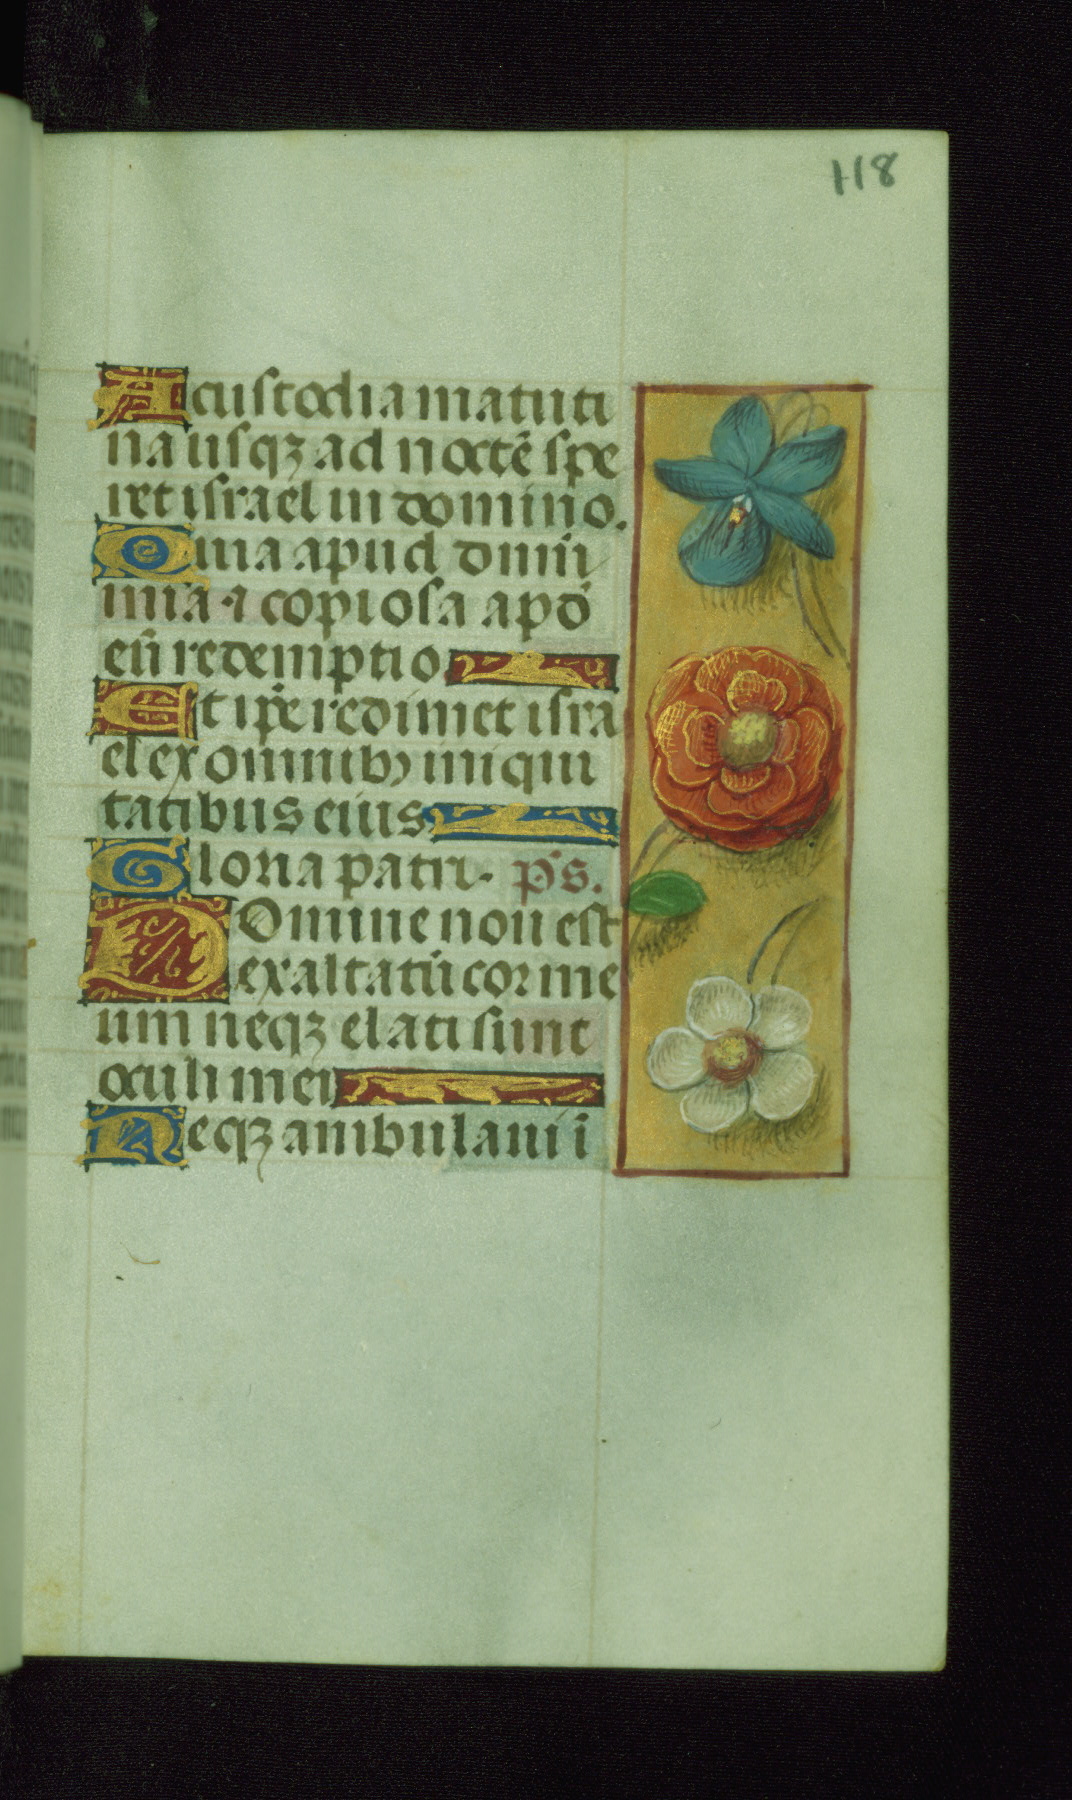 118
A custodia matuti
na usqꝫ ad noctē spe
ret israel in domino.
Quia apud dominū
mīa ⁊ copiosa apđ
eū redemptio
Et ip̄e redimet isra
el ex omnibꝫ iniqui
tatibus eius
Gloria patri. p̄s.
Domine non est
exaltatū cor me
um neqꝫ elati sunt
oculi mei
Neqꝫ ambulaui ī